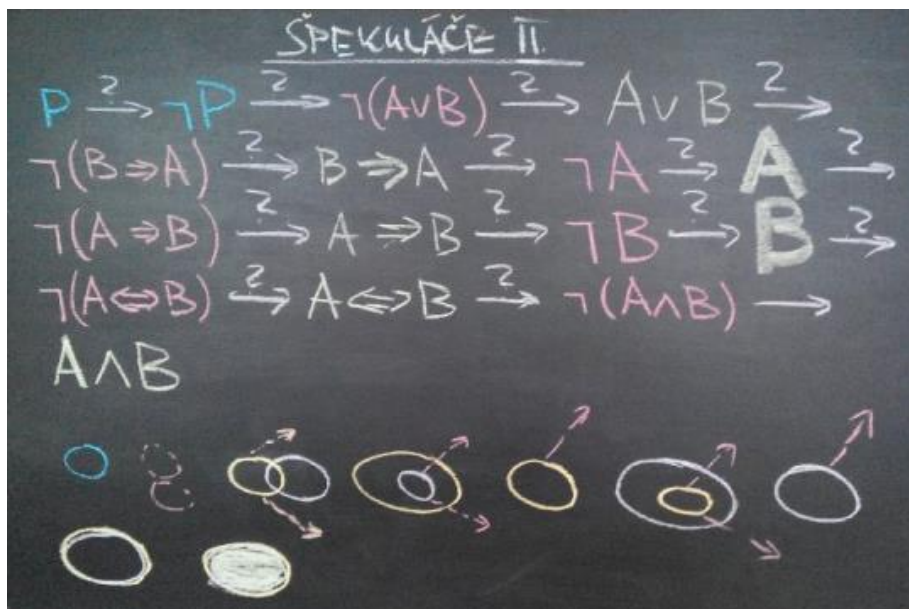 ŠPEKULÁČE II.
P ?→ ¬P ?→ ¬(A∨B) ?→ A∨B ?→
¬(B⇒A) ?→ B⇒A ?→ ¬A ?→ A ?→
¬(A⇒B) ?→ A⇒B ?→ ¬B ?→ B ?→
¬(A⇔B) ?→ A⇔B ?→ ¬(A∧B) →
A∧B